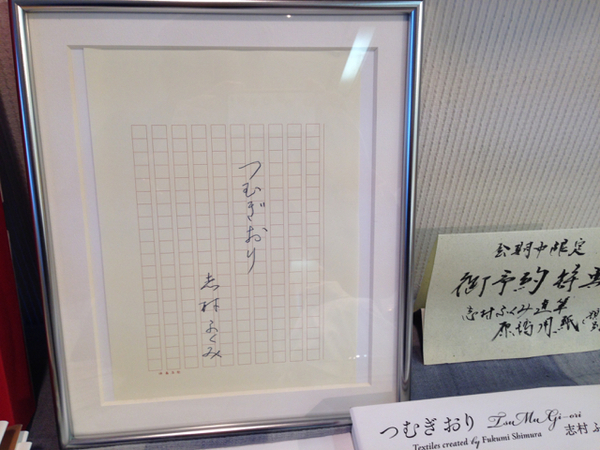 つむぎおり
志村ふくみ
会期中限定
御予約
志村ふくみ直筆
原稿用紙
つむぎおり TsuMuGi-ori
Textiles created by Fukumi Shimura 志村ふ